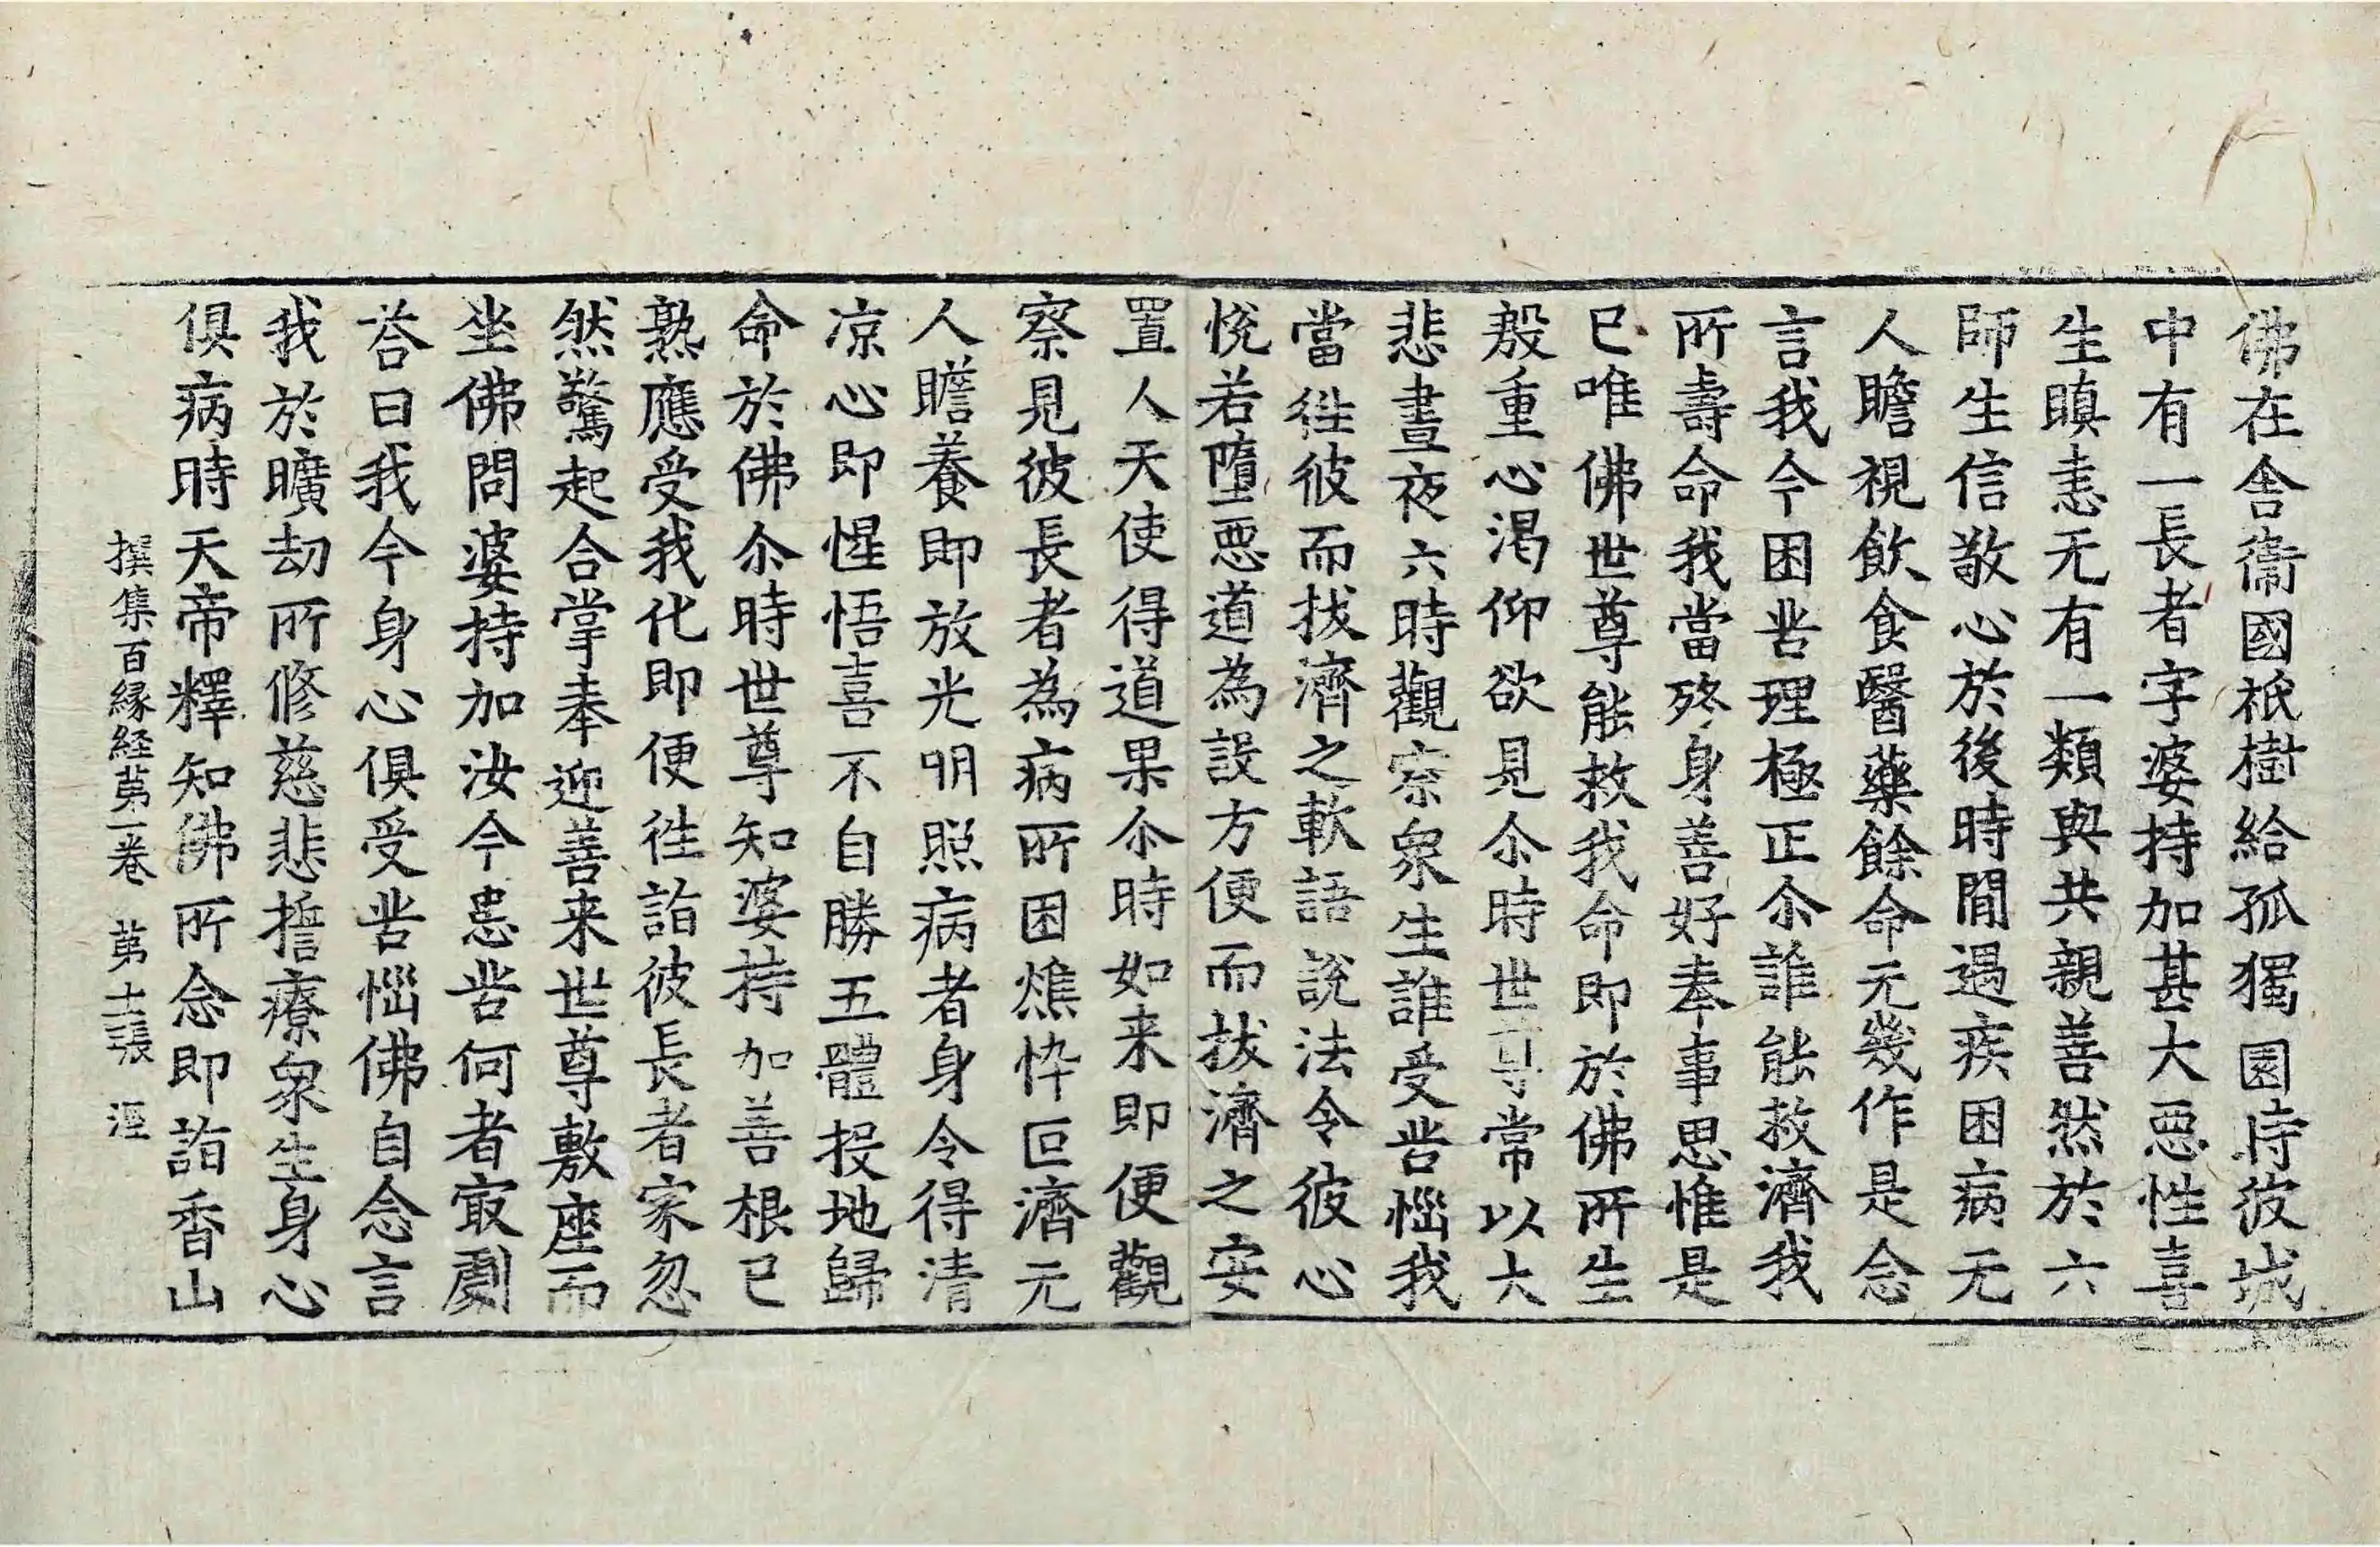 佛在舎衞國祇樹給孤獨園時彼城
中有一長者字婆持加甚大惡性喜
生瞋恚无有一類與共親善然於六
師生信敬心於後時間遇疾困病无
人瞻視飲食醫藥餘命无幾作是念
言我今困苦理極正尒誰能救濟我
所壽命我當終身善好奉事思惟是
已唯佛世尊能救我命即於佛所生
殷重心渇仰欲見尒時世尊常以大
悲晝夜六時觀察衆生誰受苦惱我
當往彼而拔濟之軟語說法令彼心
悅若墮惡道為設方便而拔濟之安
置人天使得道果尒時如来即便觀
察見彼長者為病所困燋悴叵濟无
人瞻養即放光明照病者身令得清
凉心即惺悟喜不自勝五體投地歸
命於佛尒時世尊知婆持加善根已
熟應受我化即便往詣彼長者家忽
然驚起合掌奉迎善来世尊敷座而
坐佛問婆持加汝今患苦何者㝡劇
荅曰我今身心俱受苦惱佛自念言
我於曠劫所修慈悲誓療衆生身心
俱病時天帝釋知佛所念即詣香山
撰集百縁経苐一卷　苐十一張　涇